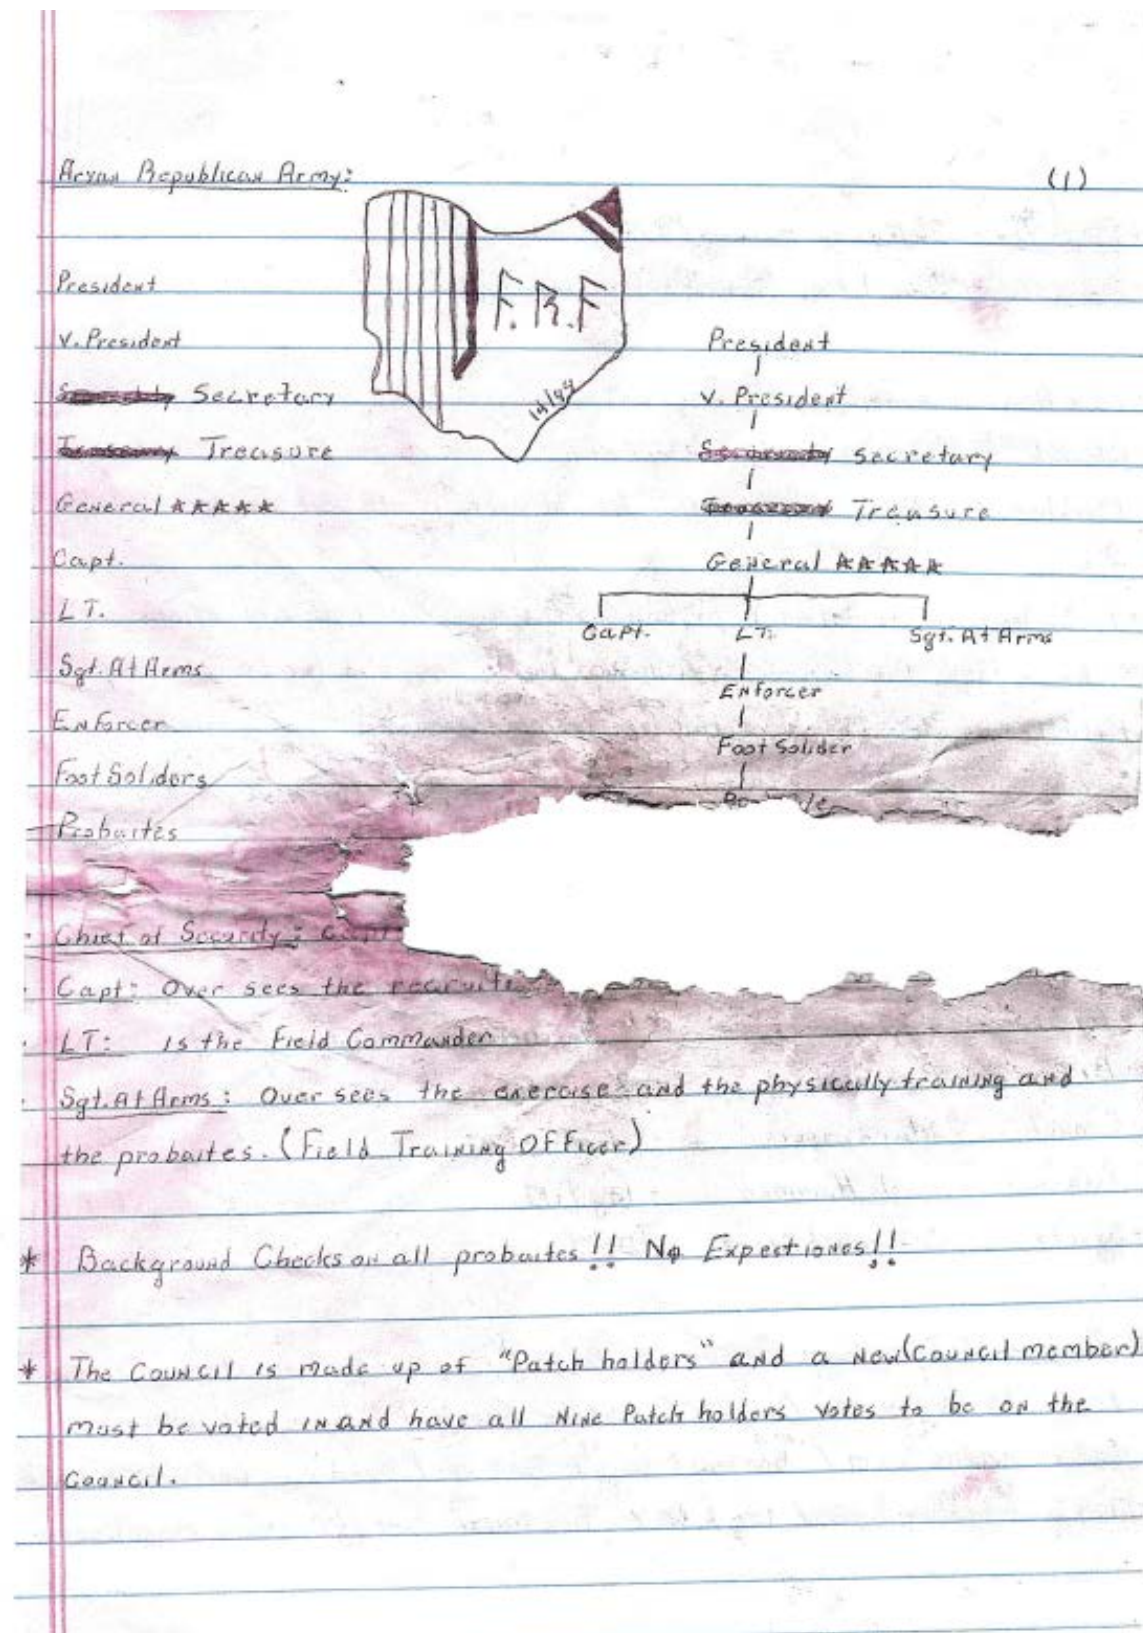 Aryan Republican Army:
(1)
President
V. President
Secretary
Treasure
General ★★★★★
Capt.
LT.
Sgt. At Arms
Enforcer
Foot Soliders
Probaites
14/88
President
V. President
Secretary
Treasure
General ★★★★★
Capt. LT. Sgt. At Arms
Enforcer
Foot Solider
Chief of Security:
Capt: Over sees the recruits
LT: is the Field Commander
Sgt. At Arms: Over sees the exercise and the physically training and
the probaites. (Field Training Officer)
* Background Checks on all probaites!! No Expectiones!!
* The Council is made up of "Patch holders" and a new (Council member)
must be voted in and have all nine Patch holders votes to be on the
Council.